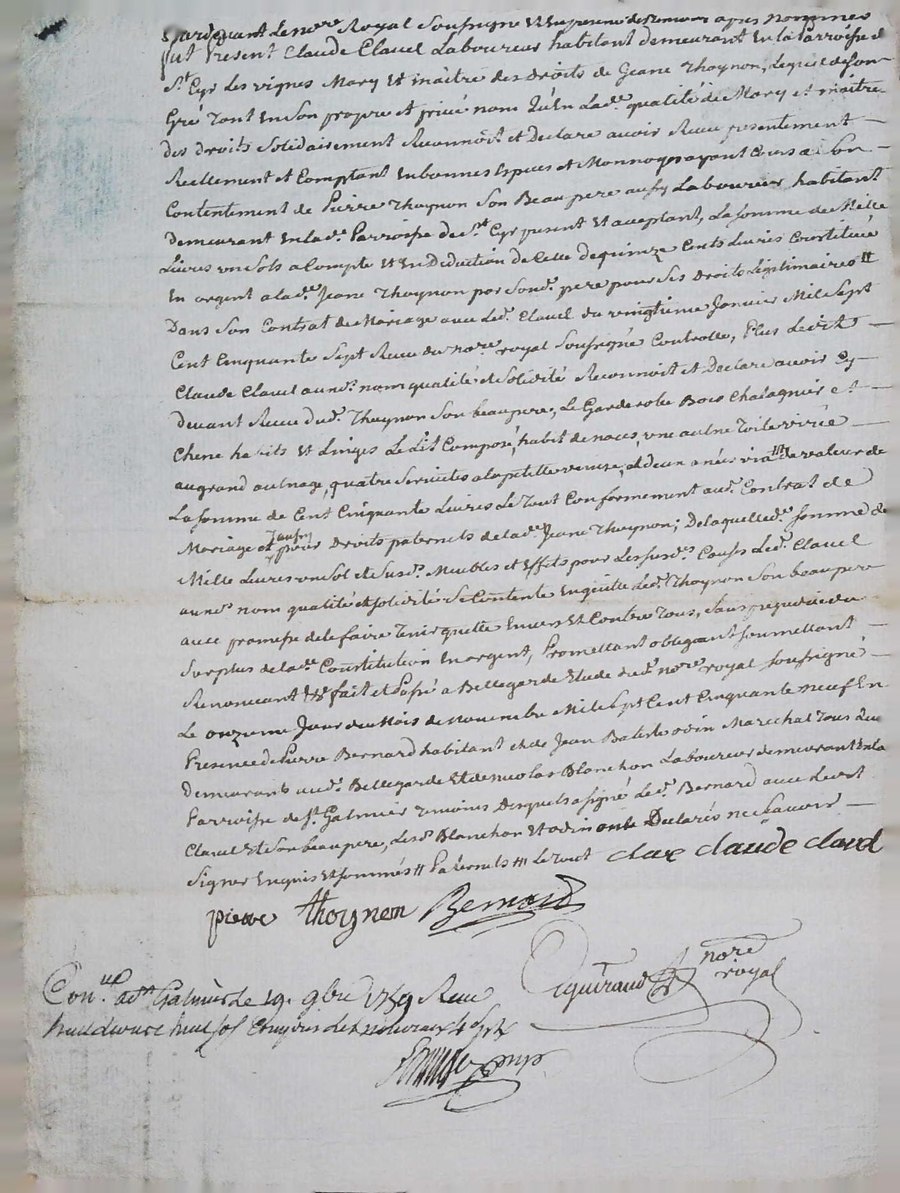 Pardevant le no.re Royal Soussigné et en presence des temoins apres nommés
fut Present Claude Clavel Laboureur habitant demeurant En la Parroisse de
S.t Cyr Les vignes Mary et maitre des droits de Jeane Thoynon, Lequel de son
Gré tant En Son propre et privé nom qu'En Lad.e qualité de Mary et maitre
des droits Solidairement Reconnoit et Declare avoir Receu presentement
Reellement et Comptant En bonnes Especes et Monnoye ayant Cours a Son
Contentement de Pierre Thoynon Son Beau pere aussy Laboureur habitant
demeurant En lad.e Parroisse de S.t Cyr present et acceptant, La somme de Mille
Livres un Sols a Compte et En Deduction de Celle de quinze Cents Livres Constituée
En argent a lad.e Jeane Thoynon par Sond. pere pour Ses Droits Légitimaires //
Dans Son Contrat de Mariage avec Led. Clavel du vingtieme Janvier Mil Sept
Cent Cinquante Sept Receu du no.re royal Soussigné Controllé, Plus Ledit
Claude Clavel aud. nom qualité et Solidité Reconnoit et Declare avoir Cy
devant Receu dud. Thoynon Son beau pere, Le Garderobe Bois Chatagnier et
Chene habits et Linges Le Lit Composé, habit de noces, une aulne Toile
au grand aulnage, quatre Serviettes a la petite venise, et de valeur de
La somme de Cent Cinquante Livres Le Tout Conformement aud. Contrat de
Mariage et aussy pour Droits paternels de lad.e Jeane Thoynon; De laquelle d.e somme de
Mille Livres un Sol et Susd. Meubles et Effets pour Les susd. Causes Led. Clavel
aud. nom qualité et solidité Se Contente En quitte Led. Thoynon Son beau pere
avec promesse de le faire Tenir quitte Envers et Contre Tous, Sans prejudice du
Surplus de lad.e Constitution En argent, Promettant obligeant Soumettant
Renonceant &.a fait et Passé a Bellegarde Etude dud. no.re royal soussigné
Le onzieme Jour du Mois de novembre Mil Sept Cent Cinquante neuf En
Presence de Pierre Bernard habitant et de Jean Batiste odin Marechal Tous deux
demeurants aud. Bellegarde et de nicolas Blanchon Laboureur demeurant En la
Parroisse de S.t Galmier Temoins Desquels a signé Led. Bernard avec Ledit
Clavel et Son beau pere, Lesd. Blanchon et odin ont Declarés ne Sçavoir
Signer Enquis et Sommés // Paternels /// Le Tout clav claude clavel
pierre thoynon Bernard
no.re
royal
Con.lé a S.t Galmier le 19. 9bre 1759 Receu